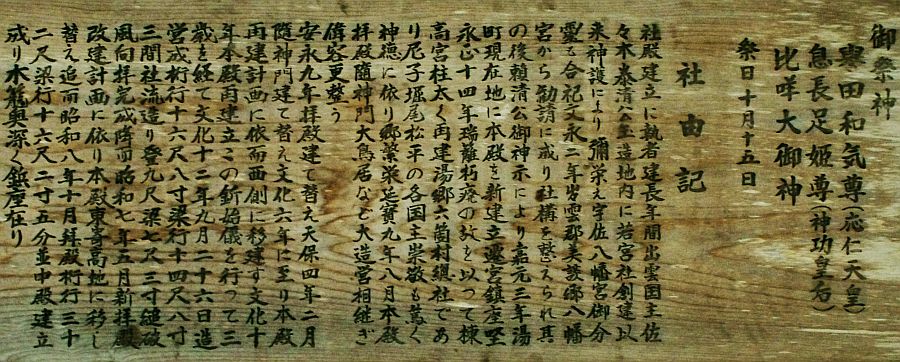 御祭神
寒田和気尊(応仁天皇)
息長足姫尊(神功皇后)
比咩大御神
祭日十月十五日
社由記
社殿建立に執者建長年間出雲国主佐
々木泰清公主造地内に若宮社創建以
来神護により彌栄え宇佐八幡宮御分
霊を合祀文永二年出雲郡美談郷八幡
宮から勧請に成り社構を整えられ其
の後頼清公御神示により嘉元三年湯
町現在地に本殿を新建立遷宮鎮座坚
永正十四年瑞離朽廃の故を以って棟
高宮柱太く再建湯郷六箇村總社であ
り尼子堀尾松平の各国主崇敬も篤く
神徳に依り郷繁栄延贄九年八月本殿
拝殿隨神門大鳥居など大造営相継ぎ
偉容更整う
安永九年拝殿建て替え天保四年二月
隨神門建て替え文化六年に至り本殿
再建計画に依而西創に移建す文化十
年本殿再建立この釿始儀を行って三
歳を経て文化十二年九月二十六日造
営成桁行十六尺八寸梁行十四尺八寸
三間社流造り登九尺梁七尺三寸縋破
風向拝完成降而昭和七年五月新拝殿
改建計画に依り本殿東寄高地に移し
替え追而昭和八年十月拝殿桁行三十
二尺梁行十六尺二寸五分並中殿建立
成り木䑓輿深く鎮座在り